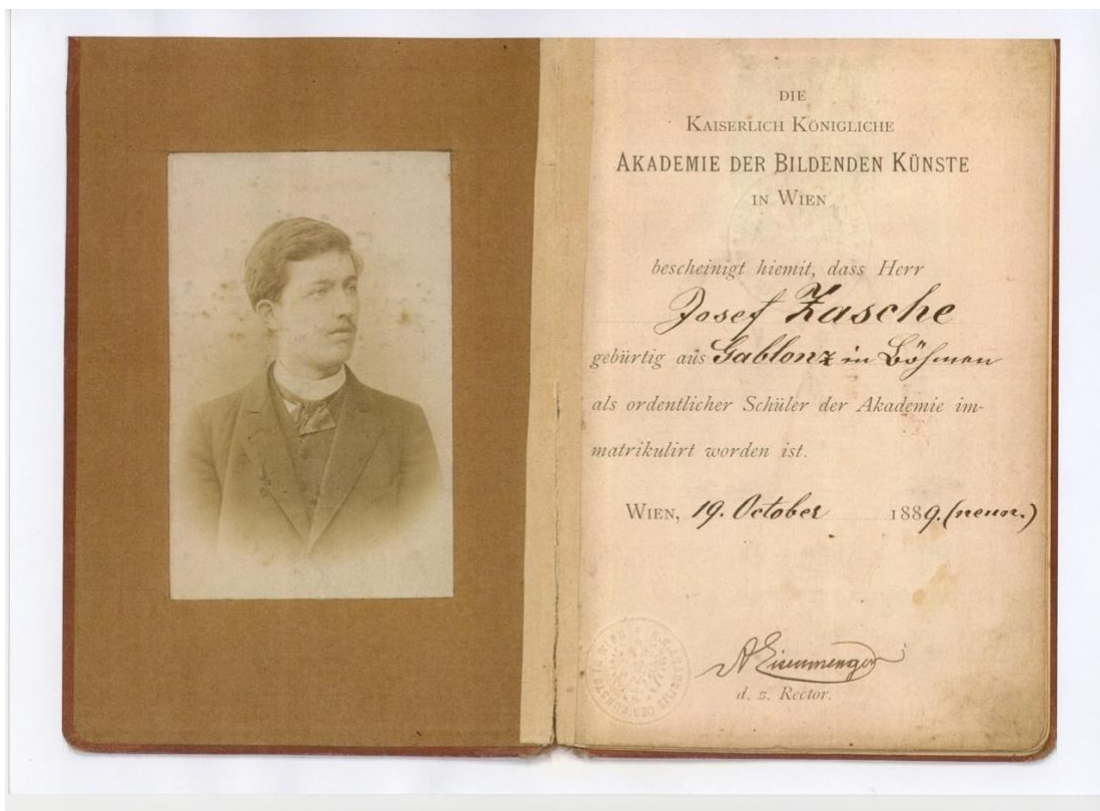 DIE
KAISERLICH KÖNIGLICHE
AKADEMIE DER BILDENDEN KÜNSTE
IN WIEN
bescheinigt hiemit, dass Herr
Josef Zasche
gebürtig aus Gablonz in Böhmen
als ordentlicher Schüler der Akademie im-
matrikulirt worden ist.
WIEN, 19. October 1889. (neun.)
A Eisenmenger
d. z. Rector.